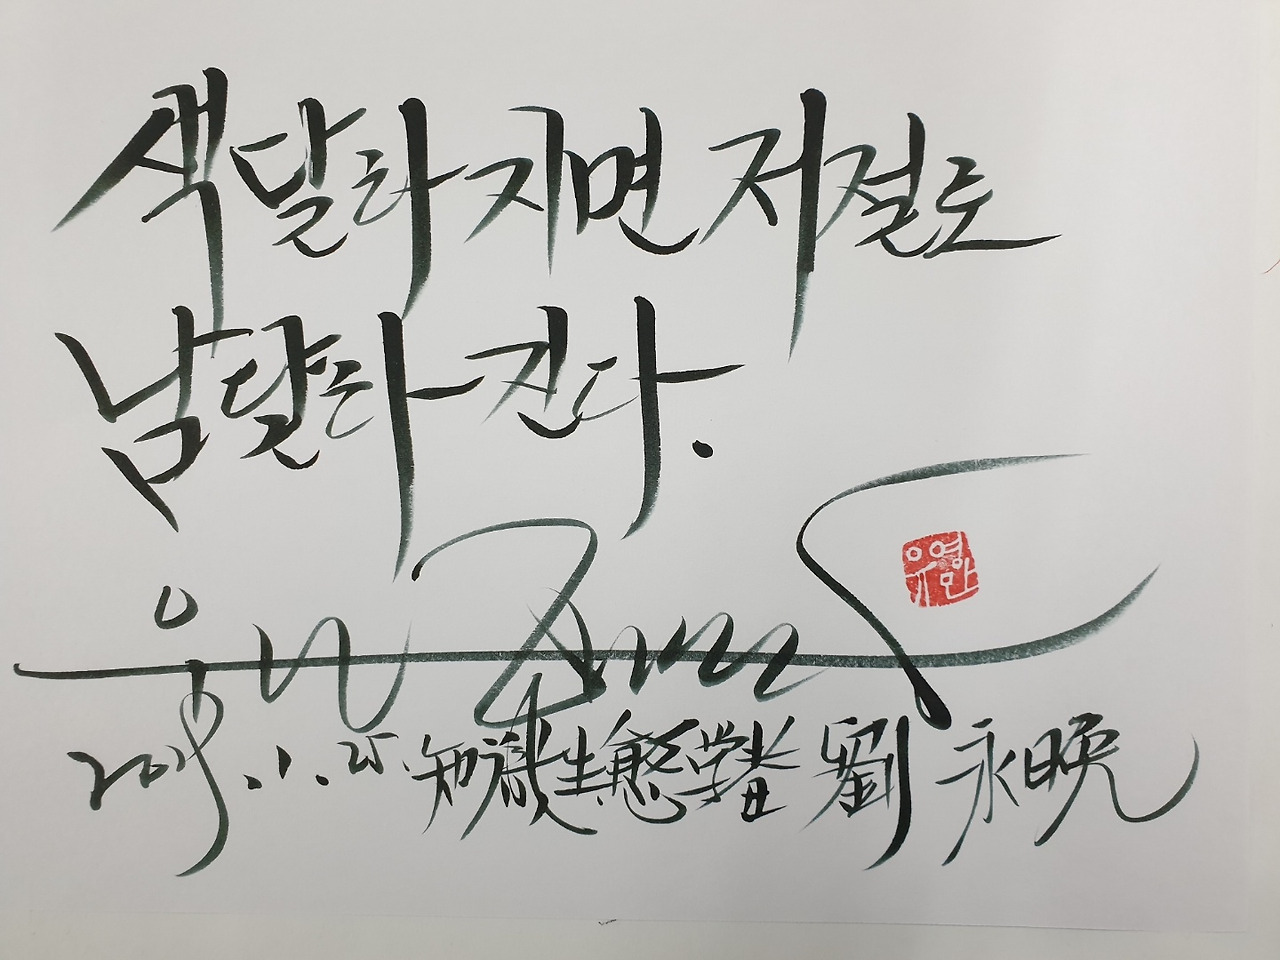 색달라지면 저절로
남달라진다.
유영만
2019.1.25. 知識生態学者 劉永晩